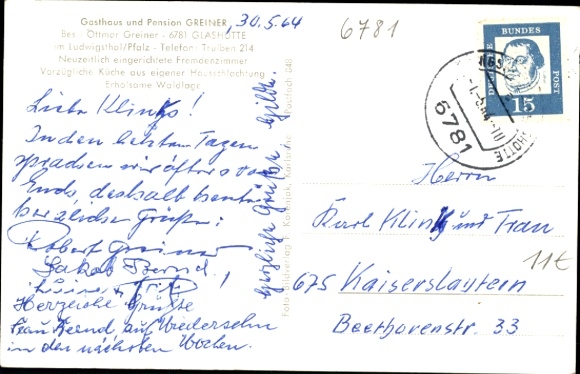 Gasthaus und Pension GREINER
Bes. Ottmar Greiner - 6781 GLASHÜTTE
im Ludwigsthal/Pfalz - Telefon: Trulben 214
Neuzeitlich eingerichtete Fremdenzimmer
Vorzügliche Küche aus eigener Hausschlachtung
Erholsame Waldlage
30.5.64
Liebe Klinks!
In den letzten Tagen
sprachen wir öfters von
Euch, deshalb heute
herzliche Grüße!
Robert Greiner
Jakob Bernd
Luise + Fritz !
Herzliche Grüße
Frau Bernd auf Wiedersehn
in den nächsten Wochen.
herzliche Grüße Hilde.
Foto-Bildverlag Karlsruhe Postfach 848
6781
DEUTSCHE BUNDESPOST
15
6781
Herrn
Karl Klink und Frau
11€
675 Kaiserslautern
Beethovenstr. 33